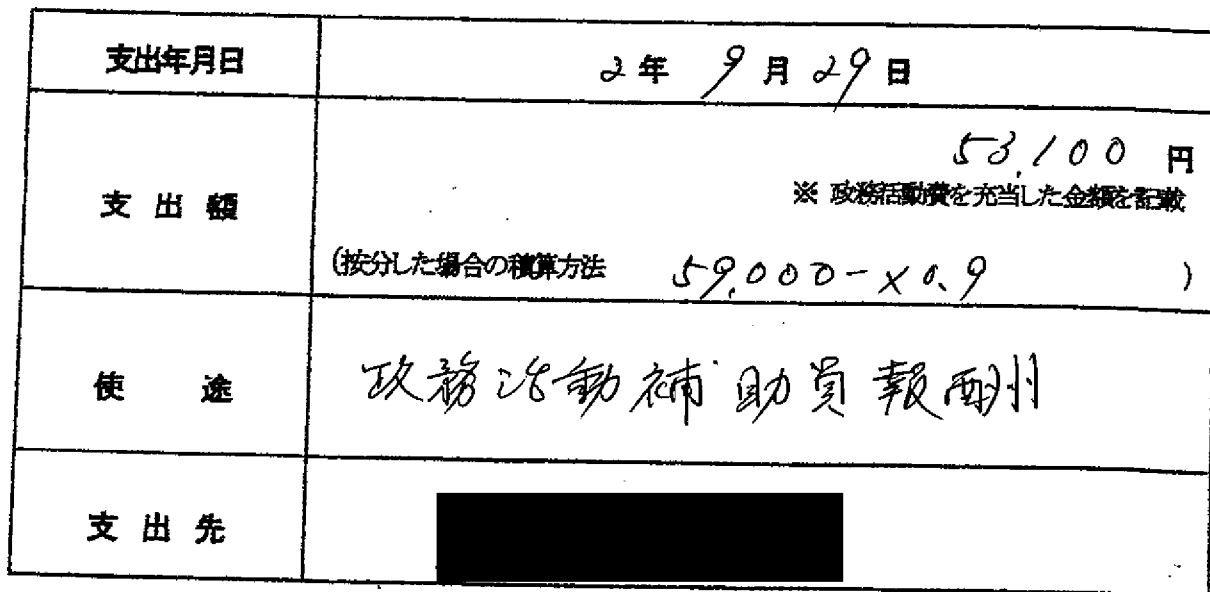 支出年月日
2年 9月29日
支出額
53,100 円
※ 政務活動費を充当した金額を記載
(按分した場合の積算方法 59,000-×0.9 )
使途
政務活動補助員報酬
支出先